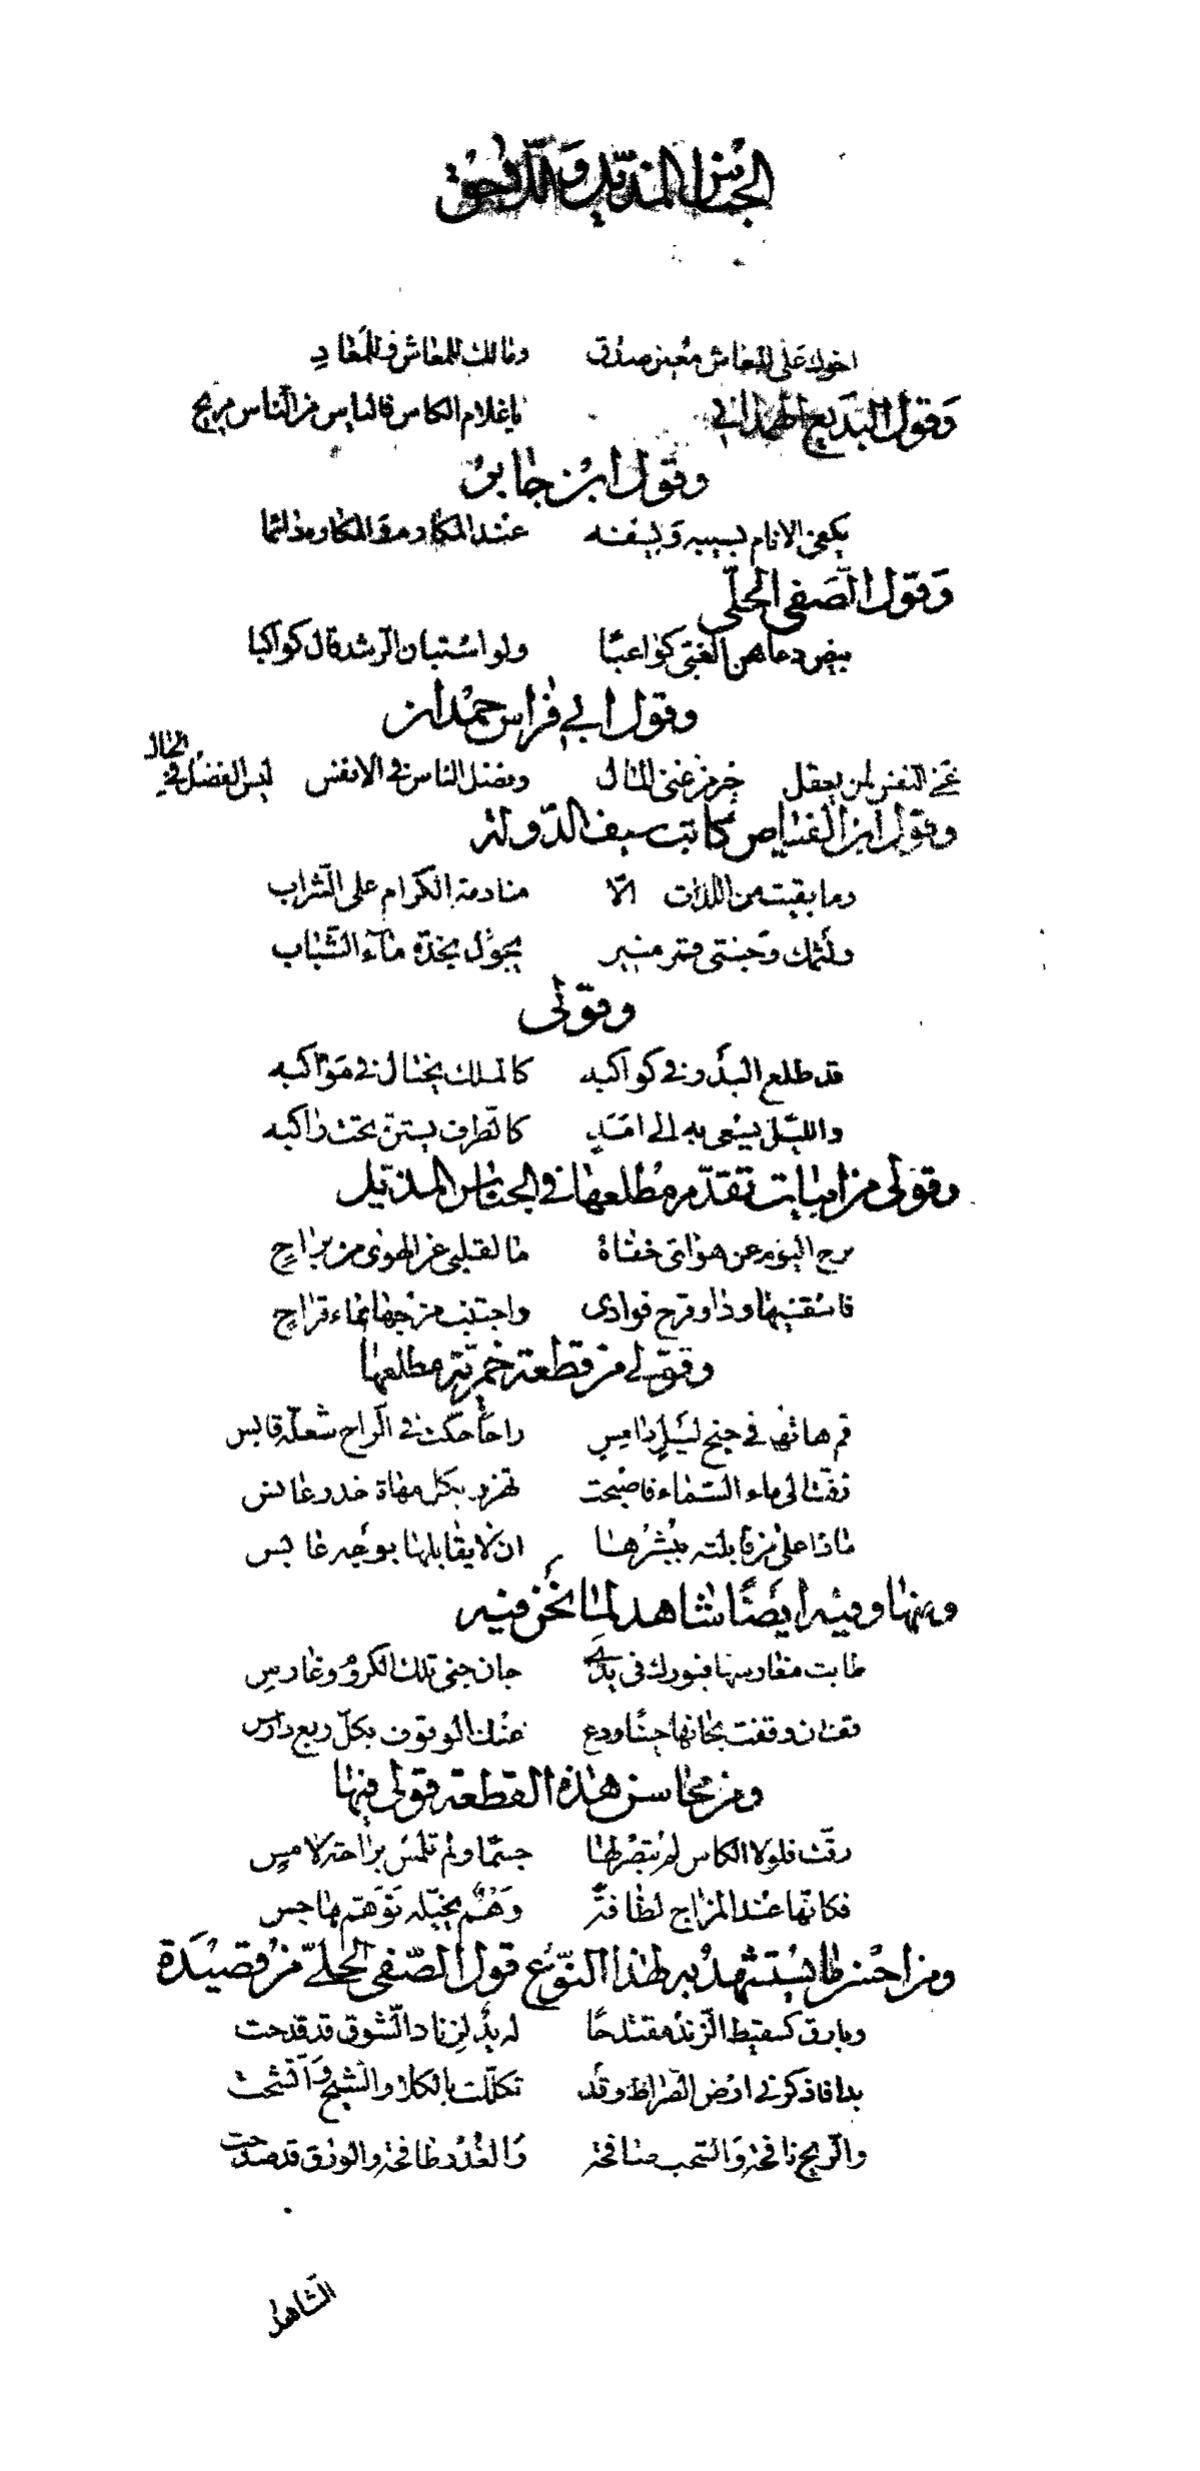 الجناس المذيل واللاحق
اخوك على المعاش معين صدق ومالك للمعاش وللمعاد
وقول البديع الهمذاني يا غلام الكاس فالياس من الناس مريح
وقول ابن جابر
يكفي الانام بسيبه وبسيفه عند المكارم والمكاره دائما
وقول الصفي الحلي
بيض دعاهن الغبي كواعبا ولو استبان الرشد قال كواكبا
وقول ابي فراس حمدان
غنى النفس لمن يعقل خير من غنى المال وفضل الناس في الانفس ليس الفضل في الحال
وقول ابن الفياض كاتب سيف الدولة
وما بقيت من اللذات الّا منادمة الكرام على الشراب
ولثمك وجنتي قمر منير يجول بخدّه مآء الشّباب
وقولى
قد طلع البدر في كواكبه كالملك يختال في مواكبه
والليل يسعى به الى امد كالطرف يستن تحت راكبه
وقولى من ابيات تقدّم مطلعها في الجناس المذيل
برح اليوم عن هواتى خفاة ما لقلبي عن الهوى من براح
فاسقنيها وداو قرح فوادى واجتنب مزجها بماء قراح
وقولي من قطعة خمرية مطلعها
قم هاتها في جنح ليل دامس راحًا حكت في الراح شعلة قابس
زفت الى ماء السماء فاصبحت تهزو بكل مهاة خدر عانس
ماذا على من قابلته ببشرها ان لا يقابلها بوجه عابس
ومنها وفيه ايضًا شاهد لما نحن فيه
طابت مغارسها فبورك في يدَي جان جنى تلك الكروم وغارس
قف ان وقفت بحانها حينًا ودع عنك الوقوف بكلّ ربع دارس
ومن محاسن هذه القطعة قولى فيها
رقت فلولا الكاس لم نبصر لها جسمًا ولم تلمس براحة لامس
فكانّها عند المزاج لطافة وَهْم يخيّله توهّم هاجس
ومن احسن ما يستشهد به لهذا النّوع قول الصّفى الحلّي من قصيدة
وبارق كسقيط الزند مقتدحًا له يد لزناد الشوق قد قدحت
بدا فاذكرني ارض الصراط وقد تكلّلت بالكلا والشيح وَاتّشحت
والريح نافحة وَالسّحب سافحة وَالغُدْر طافحة والورق قد صدحت
الشاهد